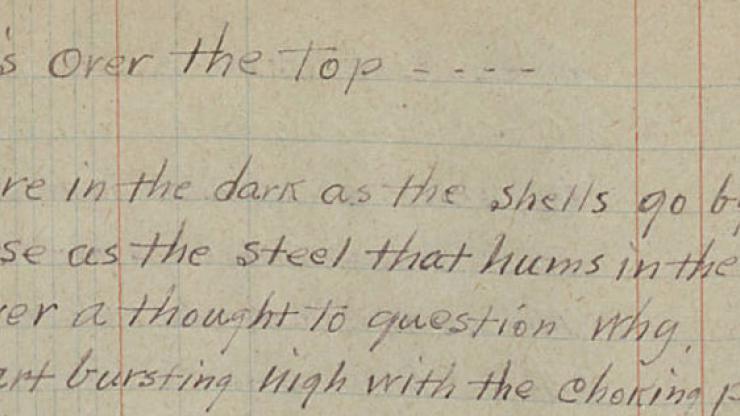 's over the Top - - - -
re in the dark as the shells go by
se as the steel that hums in the
er a thought to question why.
art bursting high with the choking p